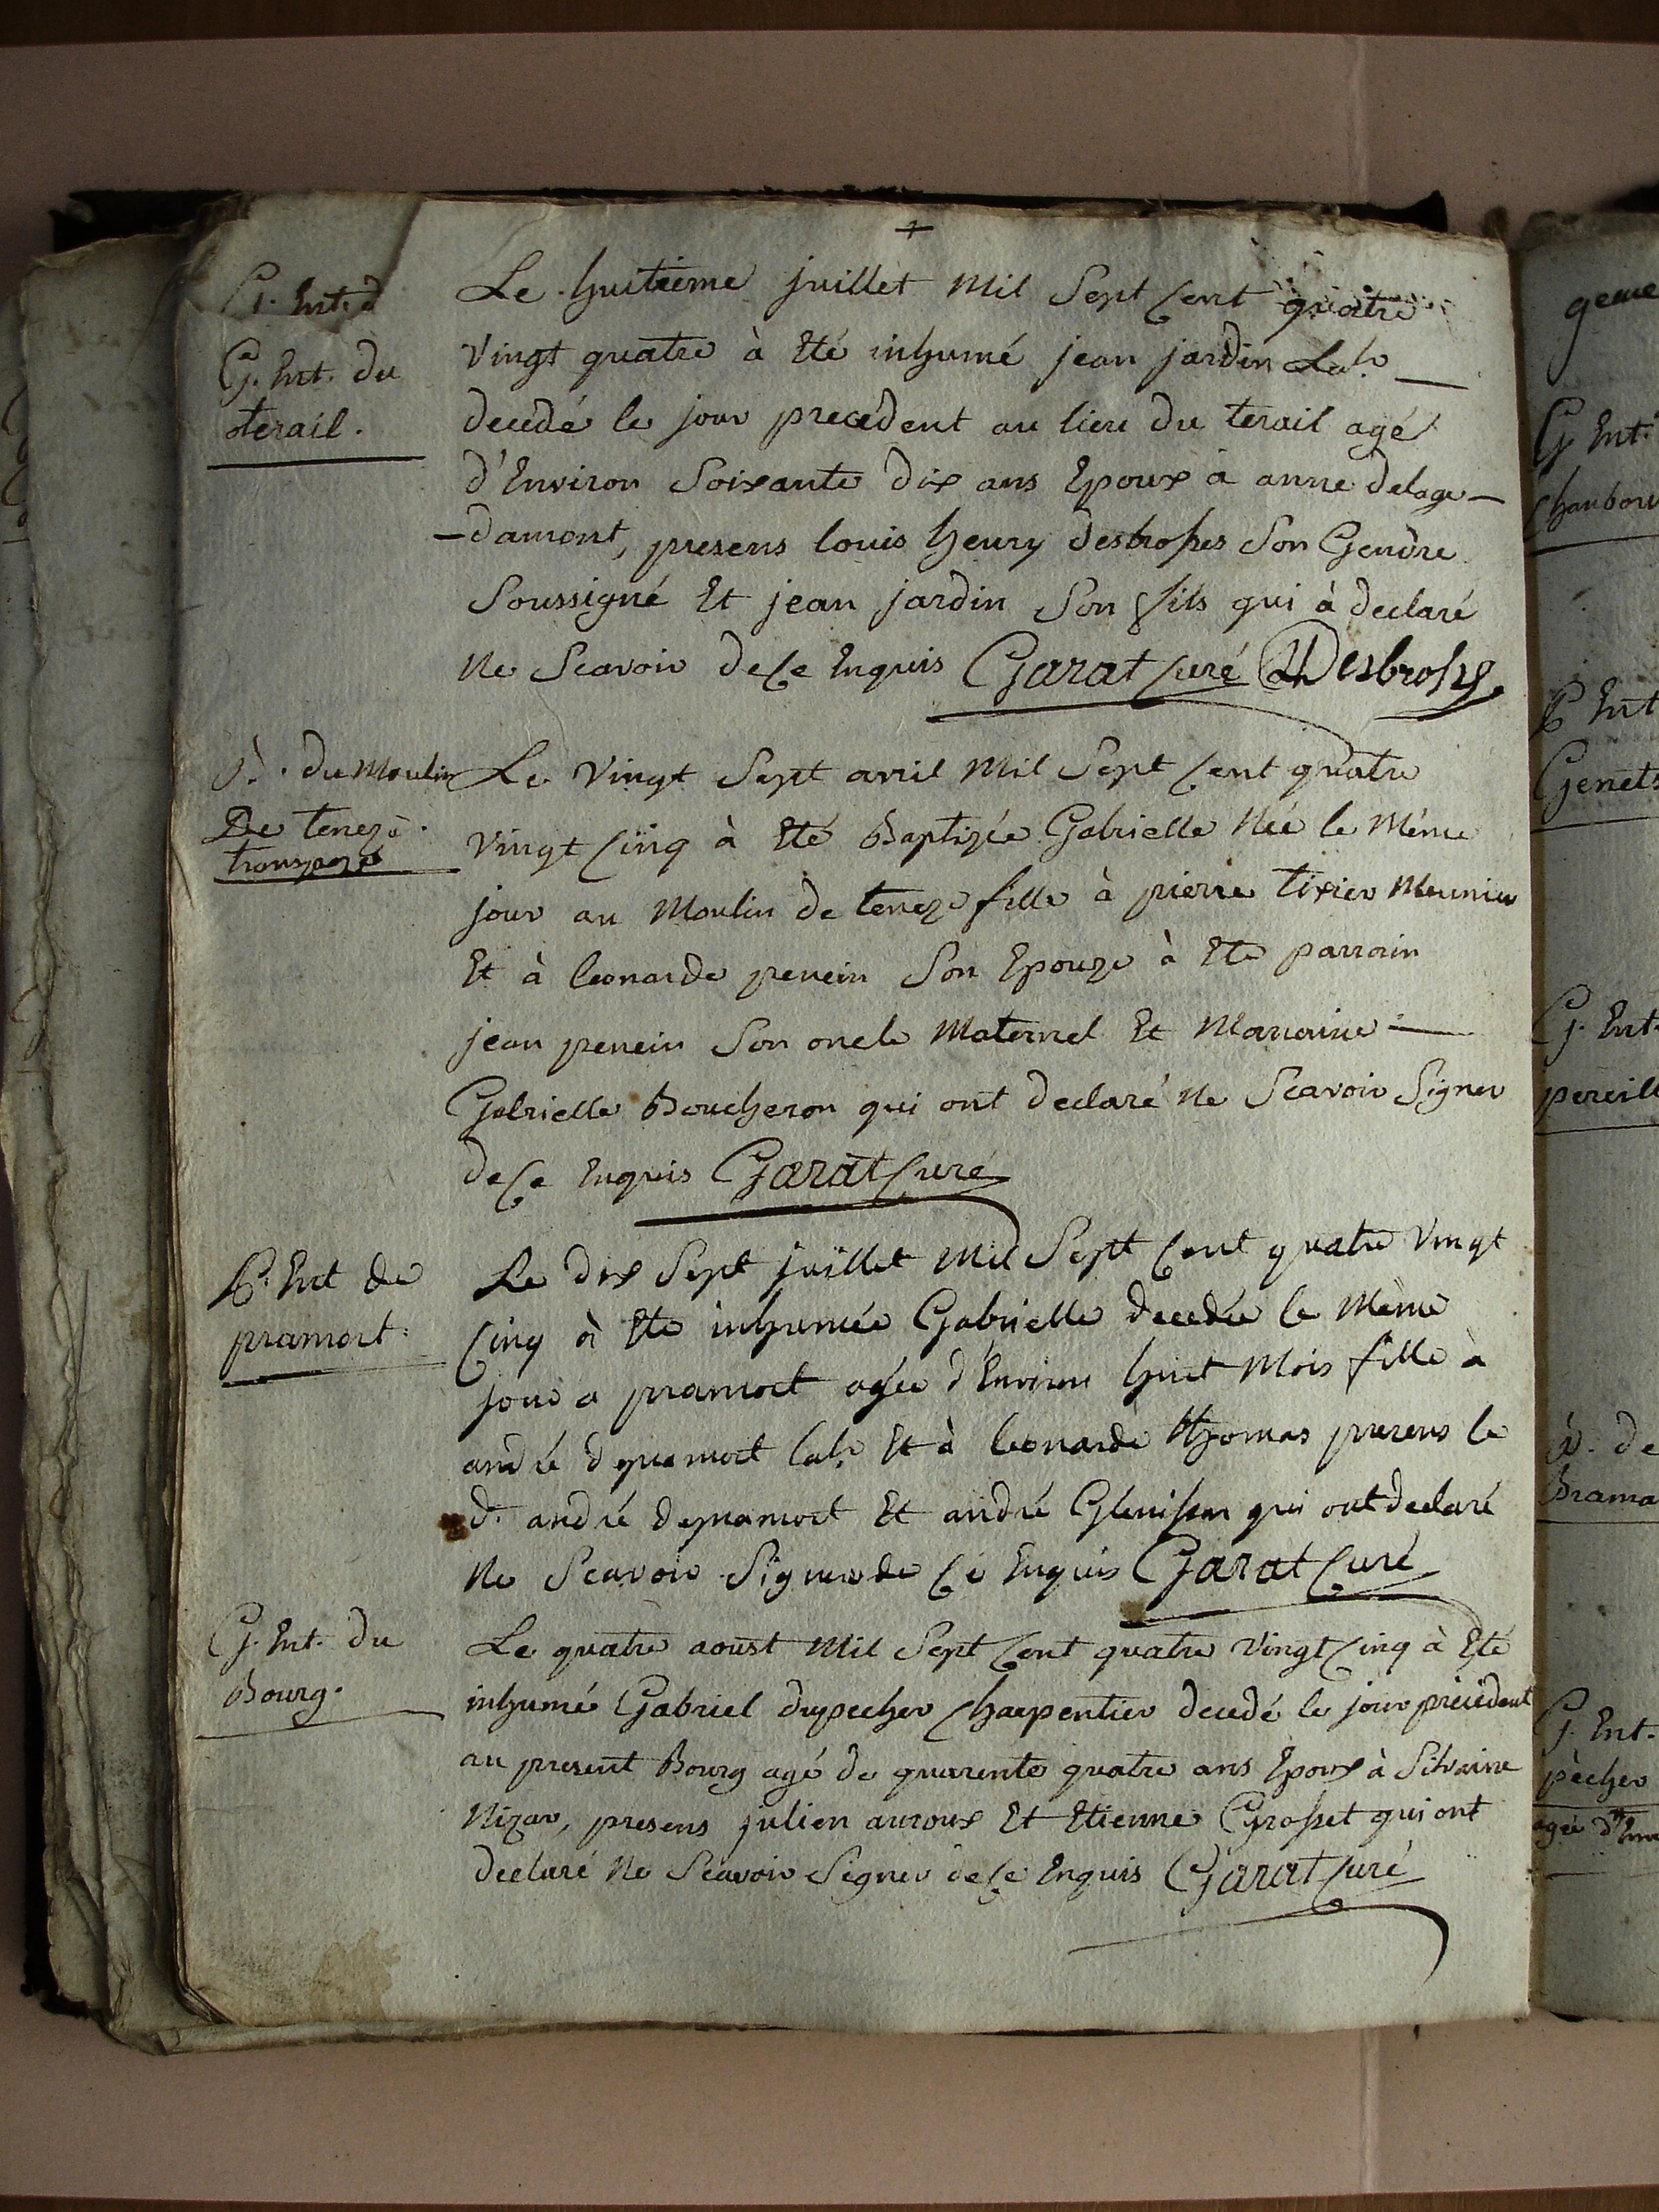 G. Ent. d
G. Ent. du
terail.
Le huitieme juillet mil Sept Cent quatre
vingt quatre à Eté inhumé jean jardin Labr
decedé le jour precedent au lieu du terail agé
d'Environ Soixante dix ans Epoux à anne delage-
-damont, presens louis henry desbrosses Son Gendre
Soussigné Et jean jardin Son fils qui à declaré
Ne Scavoir de Ce Enquis Garat Curé Desbrosses
du Moulin
De teneze
transposé
Le Vingt Sept avril Mil Sept Cent quatre
vingt Cinq à Eté Baptizée Gabrielle Née le Même
jour au Moulin de teneze fille à pierre tixier Meunier
Et à leonarde penein Son Epouze à Eté parrain
jean penein Son oncle Maternel Et Maraine
Gabrielle Boucheron qui ont declaré Ne Scavoir Signer
de Ce Enquis Garat Curé
P. Ent de
pramort
Le dix Sept juillet Mil Sept Cent quatre Vingt
Cinq à Eté inhumée Gabrielle decedée le Même
jour a pramort agée d'Environ huit Mois fille à
andré depramort labr Et à leonarde thomas presens le
d. andré depramort Et andré Glenisson qui ont declaré
Ne Scavoir Signer de Ce Enquis Garat Curé
G. Ent. du
Bourg.
Le quatre aoust Mil Sept Cent quatre Vingt Cinq à Eté
inhumé Gabriel dupecher Charpentier decedé le jour précédent
au present Bourg agé de quarente quatre ans Epoux à Silvaine
Nizar, presens julien auroux Et Etienne Grosset qui ont
declaré Ne Scavoir Signer de Ce Enquis Garat Curé
G Ent.
P Ent
Genets
G. Ent.
de
G. Ent.
pècher